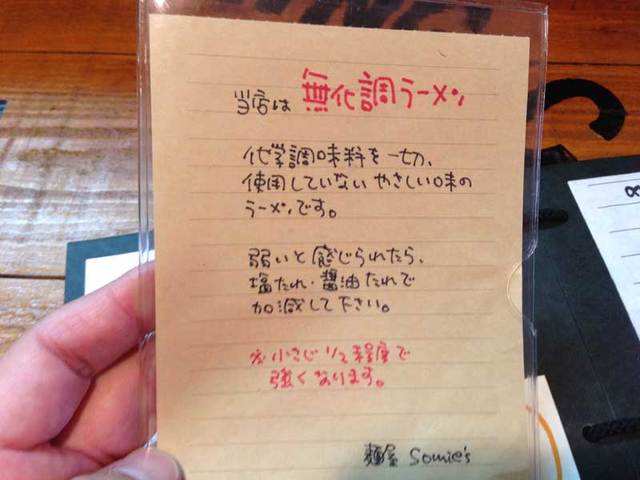 当店は 無化調ラーメン
化学調味料を一切、
使用していない やさしい味の
ラーメンです。
弱いと感じられたら、
塩たれ・醤油たれで
加減して下さい。
※小さじ1/2程度で
強くなります。
麺屋 Somie's